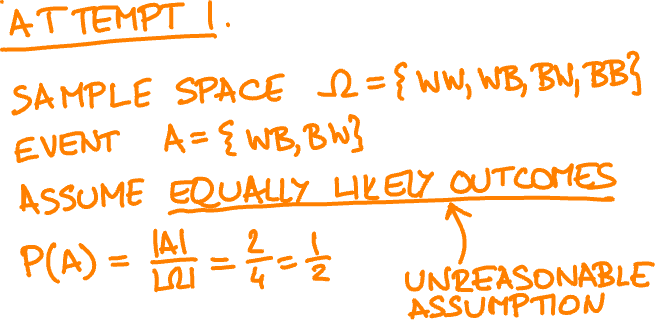 ATTEMPT 1.
SAMPLE SPACE Ω = {WW, WB, BW, BB}
EVENT A = {WB, BW}
ASSUME EQUALLY LIKELY OUTCOMES
P(A) = |A|/|Ω| = 2/4 = 1/2
UNREASONABLE
ASSUMPTION